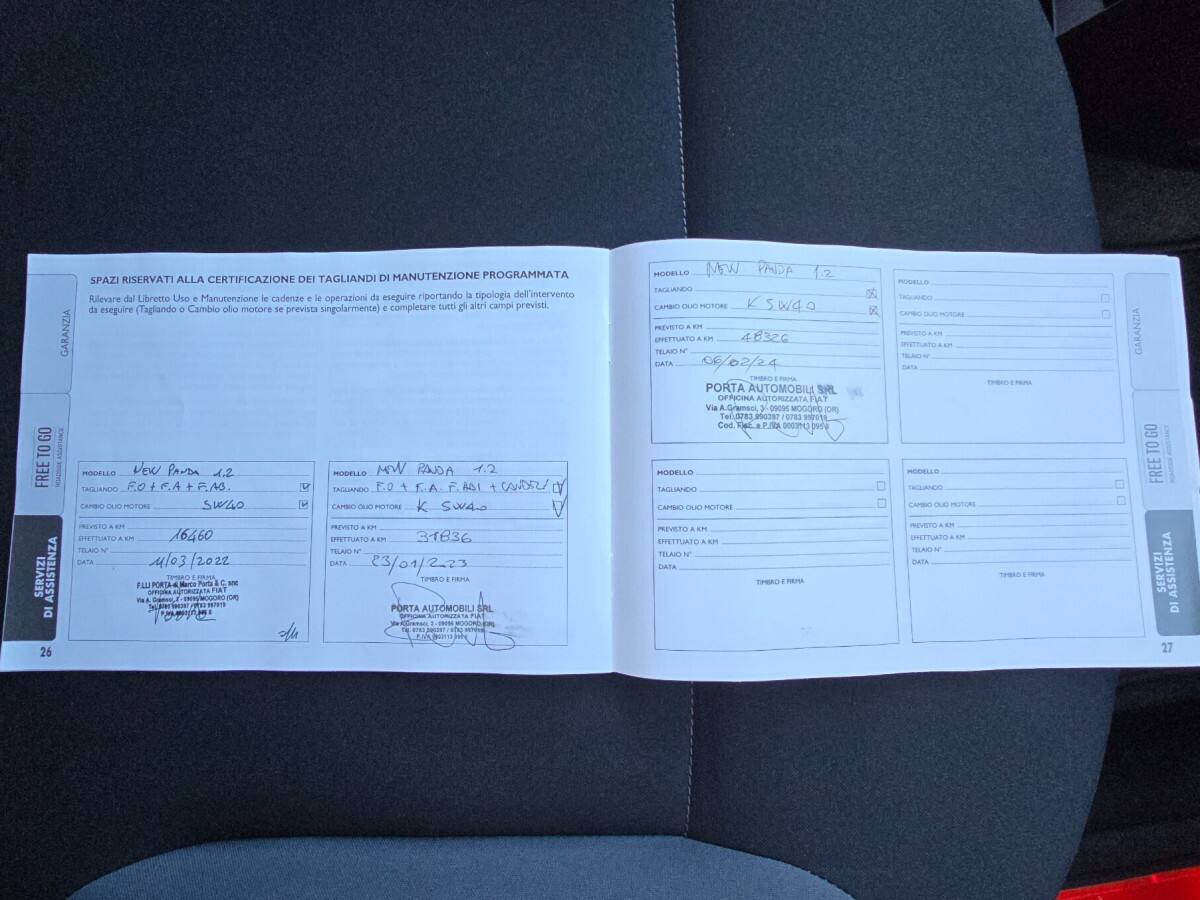 SPAZI RISERVATI ALLA CERTIFICAZIONE DEI TAGLIANDI DI MANUTENZIONE PROGRAMMATA
Rilevare dal Libretto Uso e Manutenzione le cadenze e le operazioni da eseguire riportando la tipologia dell'intervento
da eseguire (Tagliando o Cambio olio motore se prevista singolarmente) e completare tutti gli altri campi previsti.
GARANZIA
FREE TO GO
ROADSIDE ASSISTANCE
SERVIZI
DI ASSISTENZA
MODELLO NEW PANDA 1.2
TAGLIANDO F.O + F.A + F.AB.
CAMBIO OLIO MOTORE 5W40
PREVISTO A KM
EFFETTUATO A KM 16460
TELAIO N°
DATA 11/03/2022
TIMBRO E FIRMA
F.LLI PORTA di Marco Porta & C. snc
OFFICINA AUTORIZZATA FIAT
Via A. Gramsci, 3 - 09095 MOGORO (OR)
Tel. 0783 990397 / 0783 997019
26
MODELLO NEW PANDA 1.2
TAGLIANDO F.O + F.A. F.ABI + CANDELE
CAMBIO OLIO MOTORE K 5W40
PREVISTO A KM
EFFETTUATO A KM 31836
TELAIO N°
DATA 23/01/2023
TIMBRO E FIRMA
PORTA AUTOMOBILI SRL
OFFICINA AUTORIZZATA FIAT
Via A.Gramsci, 3 - 09095 MOGORO (OR)
Tel. 0783 990397 / 0783 997019
MODELLO NEW PANDA 1.2
TAGLIANDO
CAMBIO OLIO MOTORE K 5W40
PREVISTO A KM
EFFETTUATO A KM 48326
TELAIO N°
DATA 06/02/24
TIMBRO E FIRMA
PORTA AUTOMOBILI SRL
OFFICINA AUTORIZZATA FIAT
Via A.Gramsci, 3 - 09095 MOGORO (OR)
Tel. 0783 990397 / 0783 997019
Cod. Fisc. e P.IVA
MODELLO
TAGLIANDO
CAMBIO OLIO MOTORE
PREVISTO A KM
EFFETTUATO A KM
TELAIO N°
DATA
TIMBRO E FIRMA
MODELLO
TAGLIANDO
CAMBIO OLIO MOTORE
PREVISTO A KM
EFFETTUATO A KM
TELAIO N°
DATA
TIMBRO E FIRMA
MODELLO
TAGLIANDO
CAMBIO OLIO MOTORE
PREVISTO A KM
EFFETTUATO A KM
TELAIO N°
DATA
TIMBRO E FIRMA
GARANZIA
FREE TO GO
ROADSIDE ASSISTANCE
SERVIZI
DI ASSISTENZA
27